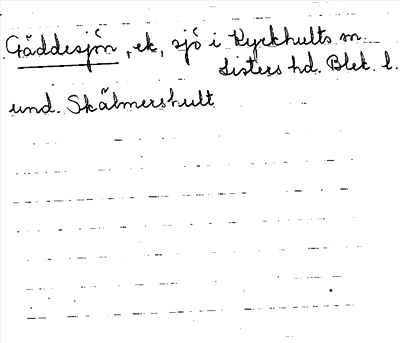 Gäddesjön, ek, sjö i Kyrkhults sn.
Listers hd. Blek. l.
und. Skälmershult